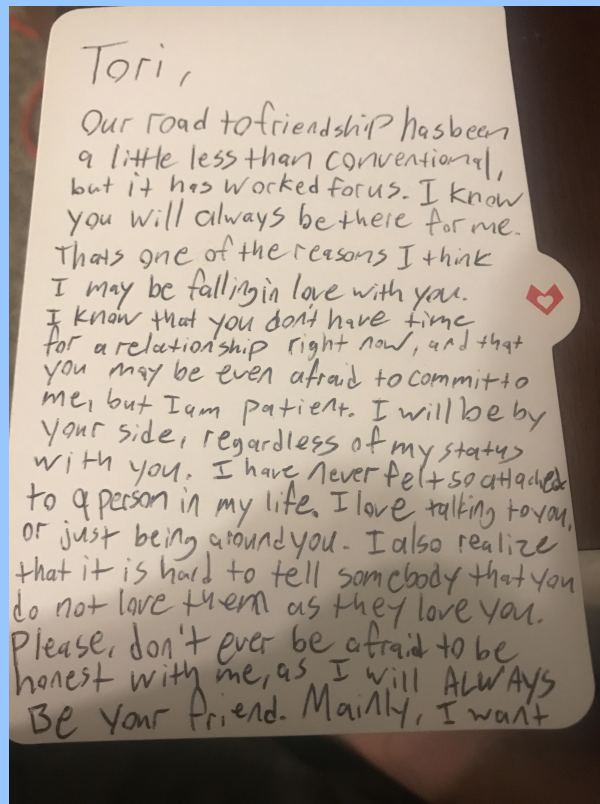 Tori,
Our road to friendship has been
a little less than conventional,
but it has worked for us. I know
you will always be there for me.
Thats one of the reasons I think
I may be falling in love with you.
I know that you don't have time
for a relationship right now, and that
you may be even afraid to commit to
me, but I am patient. I will be by
your side, regardless of my status
with you. I have never felt so attached
to a person in my life. I love talking to you,
or just being around you. I also realize
that it is hard to tell somebody that you
do not love them as they love you.
Please, don't ever be afraid to be
honest with me, as I will ALWAYS
Be your friend. Mainly, I want